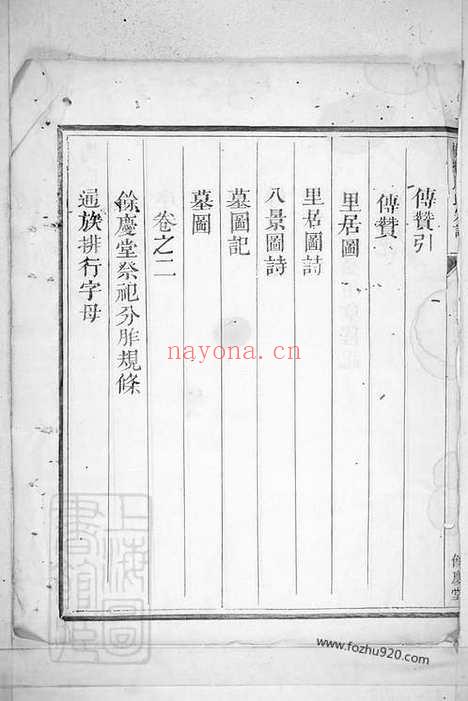 傳贊引
傳贊
里居圖
里居圖詩
八景圖詩
墓圖記
墓圖
卷之二
餘慶堂祭祀分胙規條
通族排行字母
餘慶堂
nayona.cn
上海圖
www.fozhu920.com